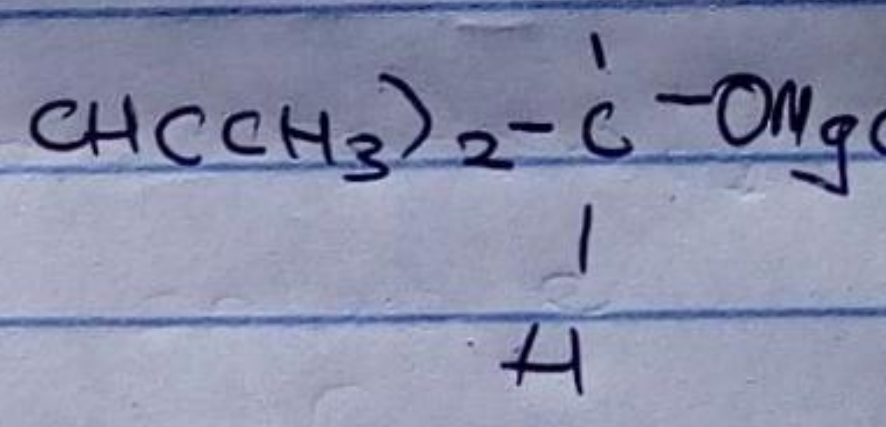 CH(CH3)2-C-OMg
H